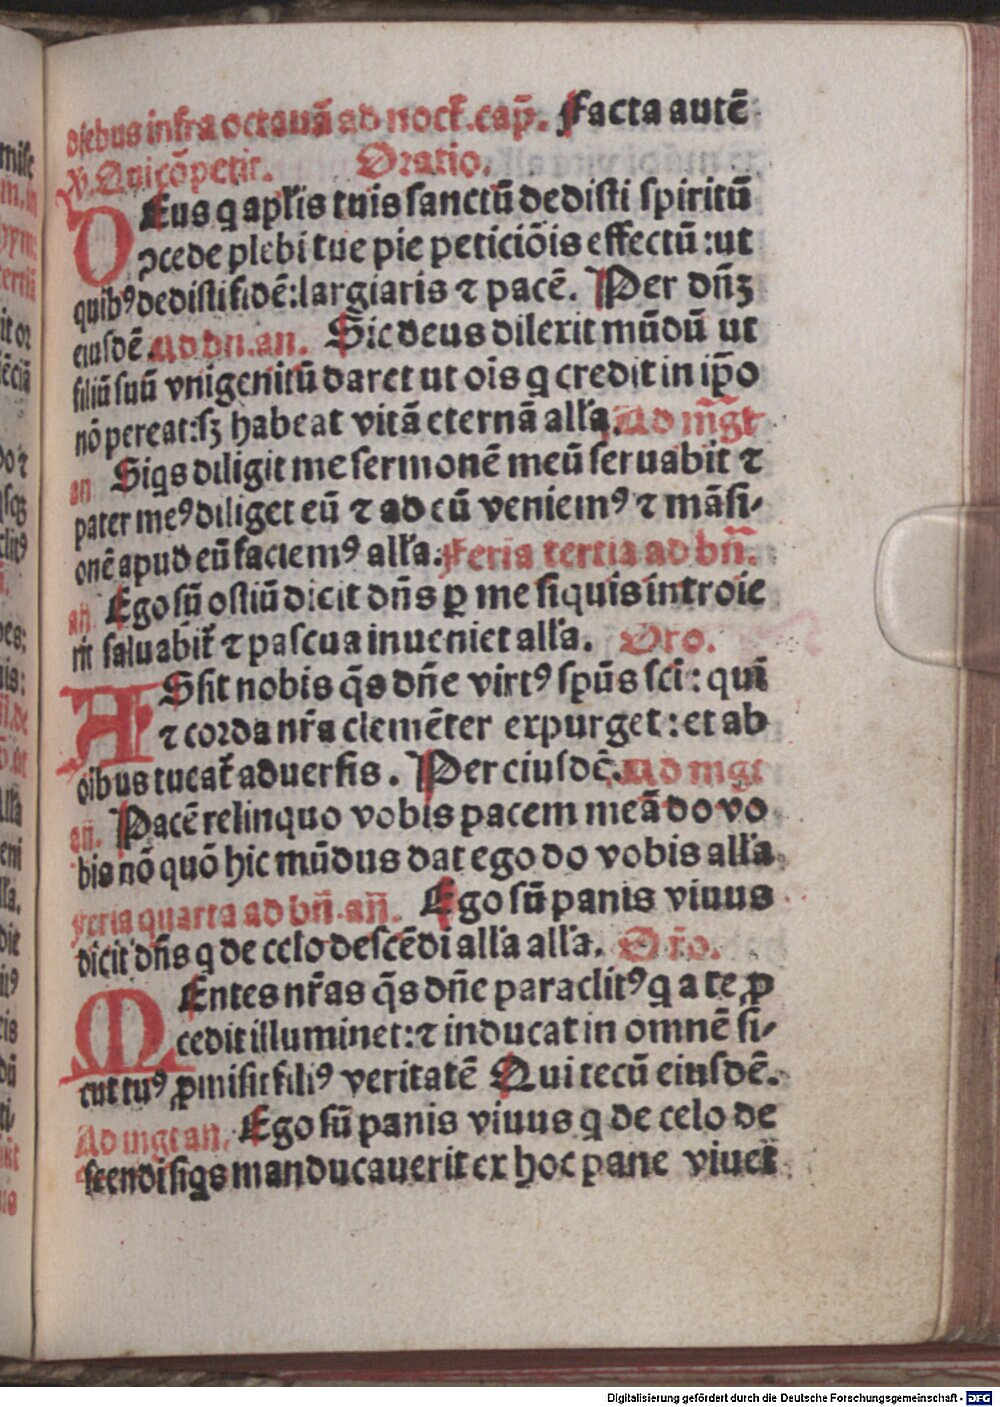 diebus infra octauā ad noct̄. cap̄. Facta autē
℣. Quicōpetit. Oratio.
DEus q apl̄is tuis sanctū dedisti spiritū
ꝯcede plebi tue pie peticiōis effectū : ut
quibꝰ dedisti fidē: largiaris ⁊ pacē. Per dn̄ꝫ
eiusdē. Ad bn̄. an. Sic deus dilexit mūdū ut
filiū suū vnigenitū daret ut oīs q credit in ip̄o
nō pereat: sꝫ habeat vitā eternā all'a. Ad m̄gt
an Siqs diligit me sermonē meū seruabit ⁊
pater meꝰ diliget eū ⁊ ad eū veniemꝰ ⁊ māsi-
onē apud eū faciemꝰ all'a. Feria tertia ad bn̄.
an̄. Ego sū ostiū dicit dn̄s ꝑ me siquis introie
rit saluabit̄ ⁊ pascua inueniet all'a. Oro.
ASsit nobis q̄s dn̄e virtꝰ sp̄us sci : qui
⁊ corda nr̄a clemēter expurget : et ab
oībus tueat̄ aduersis. Per eiusdē. Ad mgt
an̄. Pacē relinquo vobis pacem meā do vo
bis nō quō hic mūdus dat ego do vobis all'a
Feria quarta ad bn̄. an̄. Ego sū panis viuus
dicit dn̄s q de celo descēdi all'a all'a. Or̄o.
MEntes nr̄as q̄s dn̄e paraclitꝰ q a te ꝓ
cedit illuminet: ⁊ inducat in omnē si-
cut tuꝰ ꝓmisit filiꝰ veritatē Qui tecū eiusdē.
Ad mgt an. Ego sū panis viuus q de celo de
scendi siqs manducauerit ex hoc pane viuet
Digitalisierung gefördert durch die Deutsche Forschungsgemeinschaft - DFG